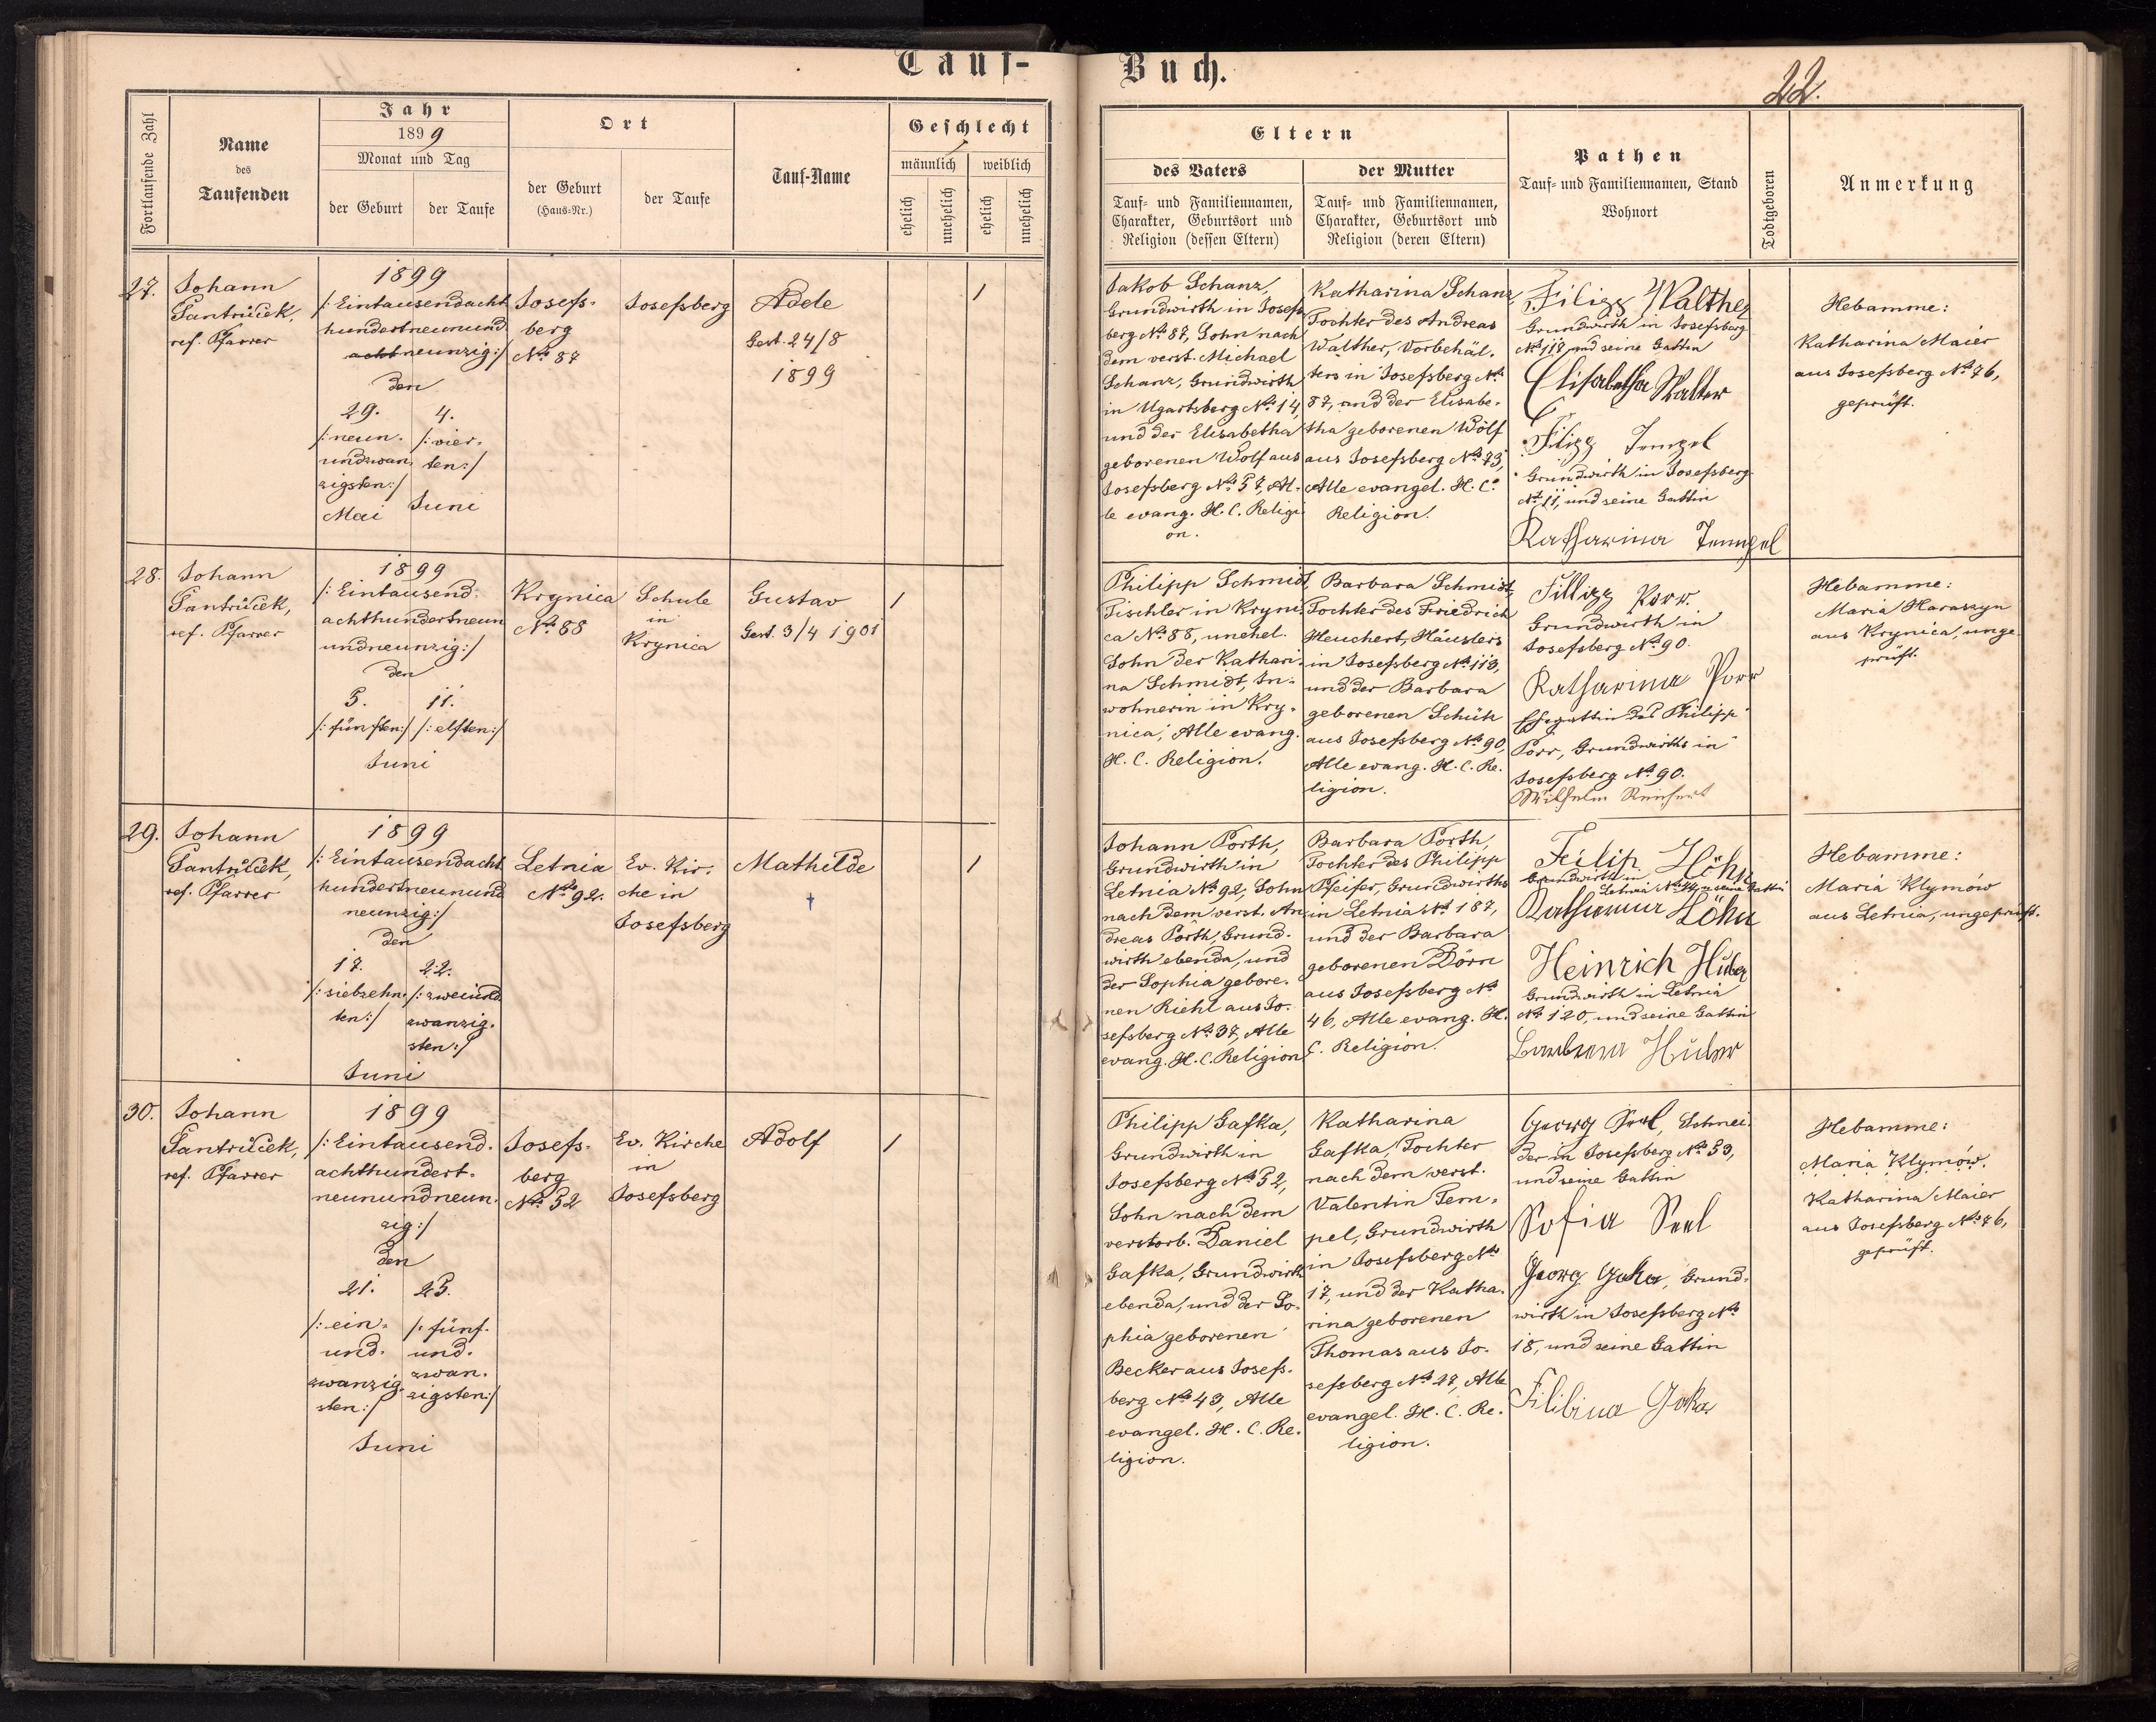 Tauf-
Buch.
22.
Fortlaufende Zahl
Name
des
Taufenden
Jahr
1899
Monat und Tag
der Geburt
der Taufe
Ort
der Geburt
(Haus-Nr.)
der Taufe
Tauf-Name
Geschlecht
männlich
weiblich
ehelich
unehelich
ehelich
unehelich
Eltern
des Vaters
Tauf- und Familiennamen,
Charakter, Geburtsort und
Religion (dessen Eltern)
der Mutter
Tauf- und Familiennamen,
Charakter, Geburtsort und
Religion (deren Eltern)
Pathen
Tauf- und Familiennamen, Stand
Wohnort
Todtgeboren
Anmerkung
27.
Johann
Jantriček,
ref. Pfarrer
1899
/: Eintausendacht
hundertneunund
acht neunzig :/
den
29.
/: neun-
undzwan-
zigsten :/
Mai
4.
/: vier-
ten :/
Juni
Josefs-
berg
No 87
Josefsberg
Adele
Gest. 24/8
1899
1
Jakob Schanz,
Grundwirth in Josefs
berg No 87, Sohn nach
dem verst. Michael
Schanz, Grundwirth
in Ugartsberg No 14,
und der Elisabetha
geborenen Wolf aus
Josefsberg No 57, Al-
le evang. H. C. Religi
on.
Katharina Schanz,
Tochter des Andreas
Walther, Vorbehäl-
ters in Josefsberg No
87, und der Elisabe-
tha geborenen Wolf
aus Josefsberg No 73,
Alle evangel. H. C.
Religion.
Filipp Walther
Grundwirth in Josefsberg
No 118 und seine Gattin
Elisabetha Walter
Filipp Tempel
Grundwirth in Josefsberg
No 11, und seine Gattin
Katharina Tempel
Hebamme:
Katharina Maier
aus Josefsberg No 76,
geprüft.
28.
Johann
Jantriček,
ref. Pfarrer
1899
/: Eintausend-
achthundertneun
undneunzig :/
den
5.
/: fünften :/
11.
/: elften :/
Juni
Krynica
No 88
Schule
in
Krynica
Gustav
Gest. 3/4 1901
1
Philipp Schmidt,
Tischler in Kryni
ca No 88, unehel.
Sohn der Kathari-
na Schmidt, In-
wohnerin in Kry-
nica, Alle evang.
H. C. Religion.
Barbara Schmidt,
Tochter des Friedrich
Heuchert, Häuslers
in Josefsberg No 113,
und der Barbara
geborenen Schük
aus Josefsberg No 90,
Alle evang. H. C. Re-
ligion.
Fillipp Porr.
Grundwirth in
Josefsberg No 90.
Katharina Porr
Ehegattin des Philipp
Porr, Grundwirths in
Josefsberg No 90.
Wilhelm Reichert
Hebamme:
Maria Haraszyn
aus Krynica, unge
prüft.
29.
Johann
Jantriček,
ref. Pfarrer
1899
/: Eintausendacht
hundertneunund
neunzig :/
den
17.
/: siebzehn-
ten :/
22.
/: zweiund
zwanzig-
sten :/
Juni
Letnia
No 92.
Ev. Kir-
che in
Josefsberg
Mathilde
†
1
Johann Porth,
Grundwirth in
Letnia No 92, Sohn
nach dem verst. An-
dreas Porth, Grund-
wirth ebenda, und
der Sophia gebore-
nen Riehl aus Jo-
sefsberg No 37, Alle
evang. H. C. Religion
Barbara Porth,
Tochter des Philipp
Pfeifer, Grundwirths
in Letnia No 187,
und der Barbara
geborenen Dörn
aus Josefsberg No
46, Alle evang. H.
C. Religion.
Filip Höhn
Grundwirth in
Letnia No u seine Gattin
Katharina Höhn
Heinrich Huber
Grundwirth in Letnia
No 120, und seine Gattin
Barbara Huber
Hebamme:
Maria Klymów
aus Letnia, ungeprüft.
30.
Johann
Jantriček,
ref. Pfarrer
1899
/: Eintausend-
achthundert-
neunundneun-
zig :/
den
21.
/: ein-
und-
zwanzig-
sten :/
25.
/: fünf-
und-
zwan-
zigsten :/
Juni
Josefs-
berg
No 52
Ev. Kirche
in
Josefsberg
Adolf
1
Philipp Gafka,
Grundwirth in
Josefsberg No 52,
Sohn nach dem
verstorb. Daniel
Gafka, Grundwirth
ebenda, und der So-
phia geborenen
Becker aus Josefs-
berg No 43, Alle
evangel. H. C. Re-
ligion.
Katharina
Gafka, Tochter
nach dem verst.
Valentin Tem-
pel, Grundwirth
in Josefsberg No
17, und der Katha-
rina geborenen
Thomas aus Jo-
sefsberg No 27, Alle
evangel. H. C. Re-
ligion.
Georg Seel, Schnei-
der in Josefsberg No 53,
und seine Gattin
Sofia Seel
Georg Gafka, Grund-
wirth in Josefsberg No
18, und seine Gattin
Filibina
Hebamme:
Maria Klymów.
Katharina Maier
aus Josefsberg No 76,
geprüft.